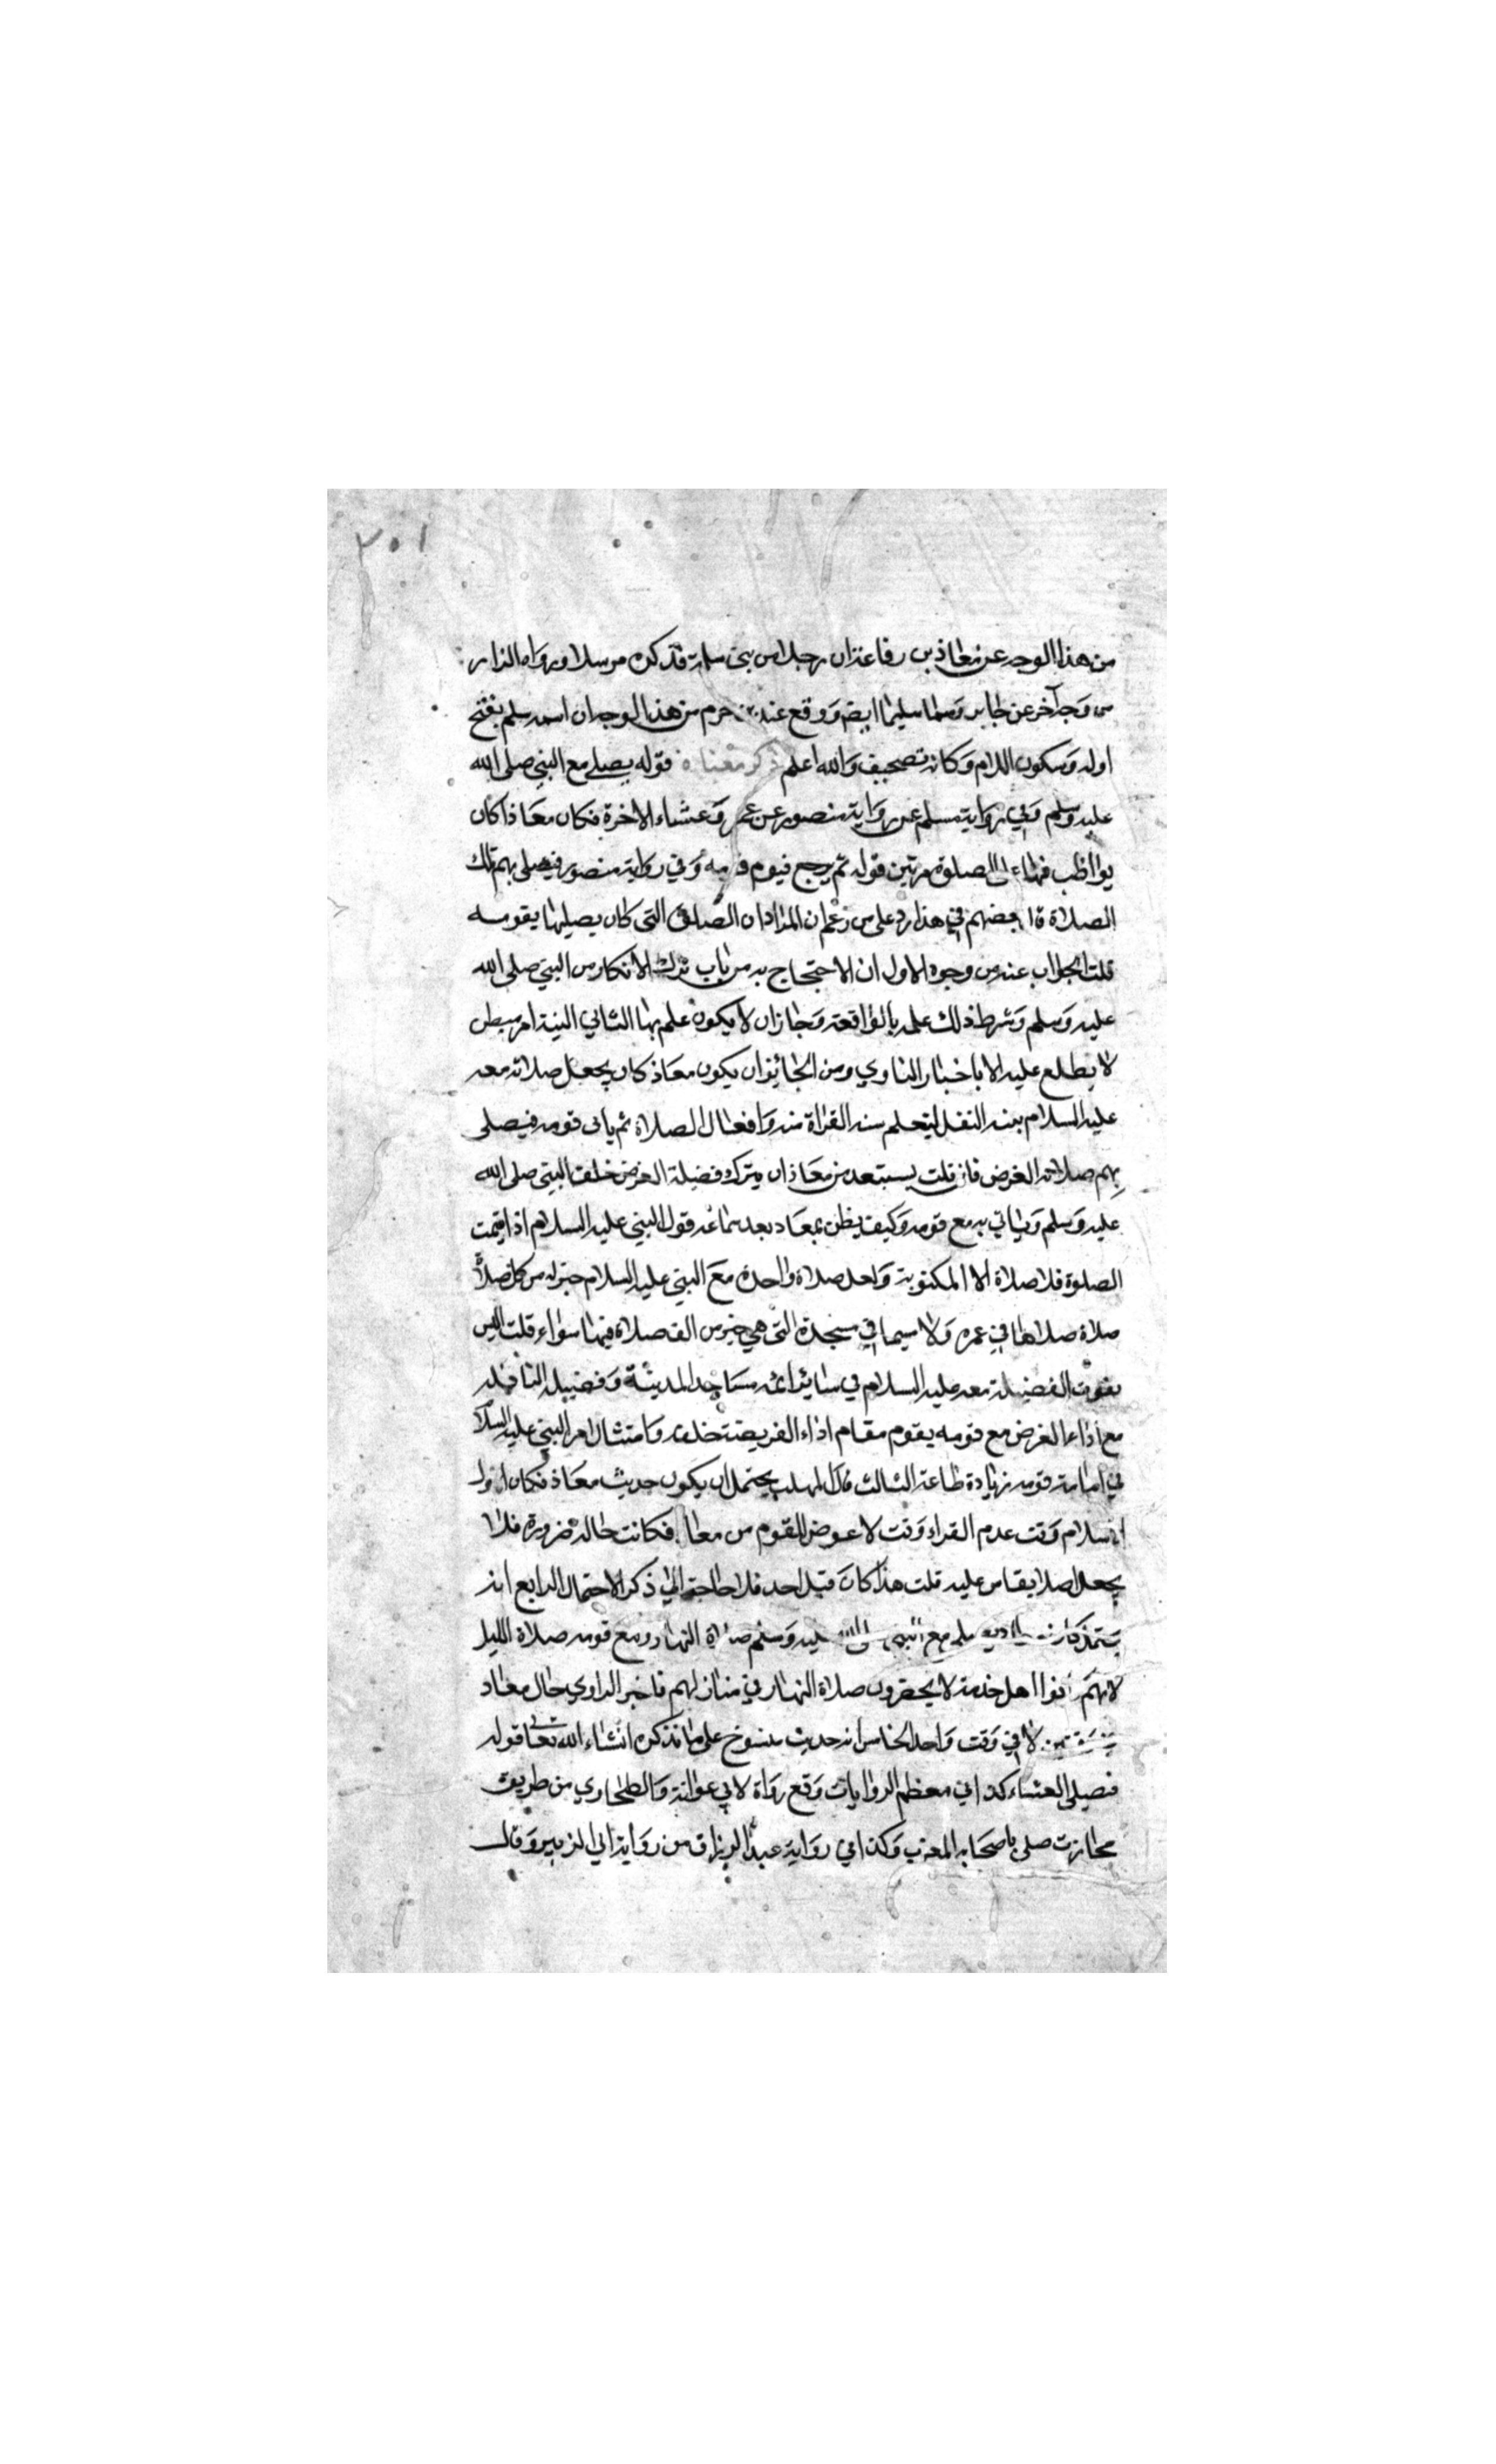 ٣٠١
من هذا الوجه عن معاذ بن رفاعة ان رجلا من بني سلمة فذكره مرسلا ورواه البزار
من وجه آخر عن جابر وسماه سليما ايضا ووقع عند بن حزم من هذا الوجه ان اسمه سلم بفتح
اوله وسكون اللام وكانه تصحيف والله اعلم ذكر معناه قوله يصلي مع النبي صلى الله
عليه وسلم وفي رواية مسلم عن رواية منصور عن عمرو عشاء الاخرة فكان معاذا كان
يواظب فيها على الصلوة مرتين قوله ثم يرجع فيوم قومه وفي رواية منصور فيصلي بهم تلك
الصلاة قال بعضهم في هذا رد على من زعم ان المراد ان الصلوة التي كان يصليها بقومه
قلت الجواب عنه من وجوه الاول ان الاحتجاج به من باب ترك الانكار من النبي صلى الله
عليه وسلم وشرط ذلك علمه بالواقعة وجاز ان لا يكون علم بها الثاني النية امر مبطن
لا يطلع عليه الا باخبار الناوي ومن الجائز ان يكون معاذ كان يجعل صلاته معه
عليه السلام بنية النفل ليتعلم سنة القراة منه وافعال الصلاة ثم ياتي قومه فيصلي
بهم صلاته الفرض فان قلت يستبعد من معاذ ان يترك فضيلة الفرض خلف النبي صلى الله
عليه وسلم وياتي به مع قومه وكيف يظن بمعاد بعد سماعه قول النبي عليه السلام اذا اقيمت
الصلوة فلا صلاة الا المكتوبة ولعل صلاة واحدة مع النبي عليه السلام خير له من كل صلاة
صلاة صلاها في عمره ولا سيما في مسجده التي هي خير من الف صلاة فيما سواه قلت اليس
تفوت الفضيلة معه عليه السلام في سائر ائمه مساجد المدينة وفضيلة النافلة
مع اداء الفرض مع قومه يقوم مقام اداء الفريضة خلفه وامتثال امر النبي عليه السلام
في امامة قومه زيادة طاعة الثالث قال المهلب يحتمل ان يكون حديث معاذ فكان اول
الاسلام وقت عدم القراء وقت لا عوض للقوم من معاذ فكانت حاله ضرورة فلا
يجعل اصلا يقاس عليه قلت هذا كان قبل احد فلا حاجة الي ذكر الاحتمال الرابع انه
مع النبي صلى الله عليه وسلم صلاة النهار ومع قومه صلاة الليل
لانهم كانوا اهل خدمة لا يحضرون صلاة النهار في منازلهم فاخبر الراوي حال معاد
لا في وقت واحد الخامس انه حديث منسوخ على ما نذكره انشاء الله تعالى قوله
فيصلي العشاء كذا في معظم الروايات وقع رواة لابي عوانة والطحاوي من طريق
محارب صلى باصحابه المغرب وكذا في رواية عبد الرزاق من رواية ابي الزبير وقال